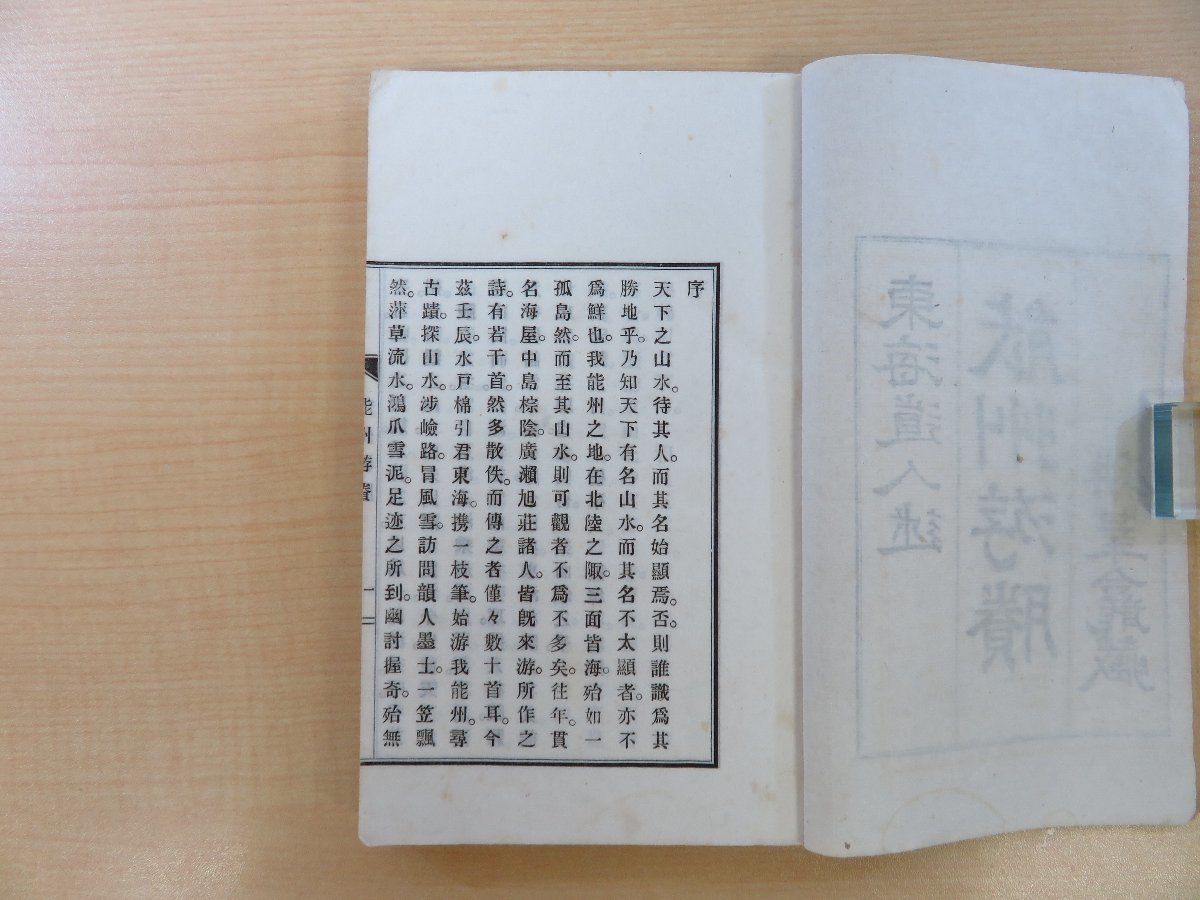 東海道人述
游賸
序
天下之山水。待其人。而其名始顯焉。否則誰識爲其
勝地乎。乃知天下有名山水。而其名不太顯者。亦不
爲鮮也。我能州之地。在北陸之陬。三面皆海。殆如一
孤島然。而至其山水。則可觀者不爲不多矣。往年。貫
名海屋。中島棕陰。廣瀬旭莊諸人。皆既來游。所作之
詩。有若干首。然多散佚。而傳之者僅々數十首耳。今
茲壬辰。水戸棉引君東海。携一枝筆。始游我能州。尋
古蹟。探山水。涉嶮路。冒風雪。訪問韻人墨士。一笠飄
然。萍草流水。鴻爪雪泥。足迹之所到。幽討握奇。殆無
能州游賸
一